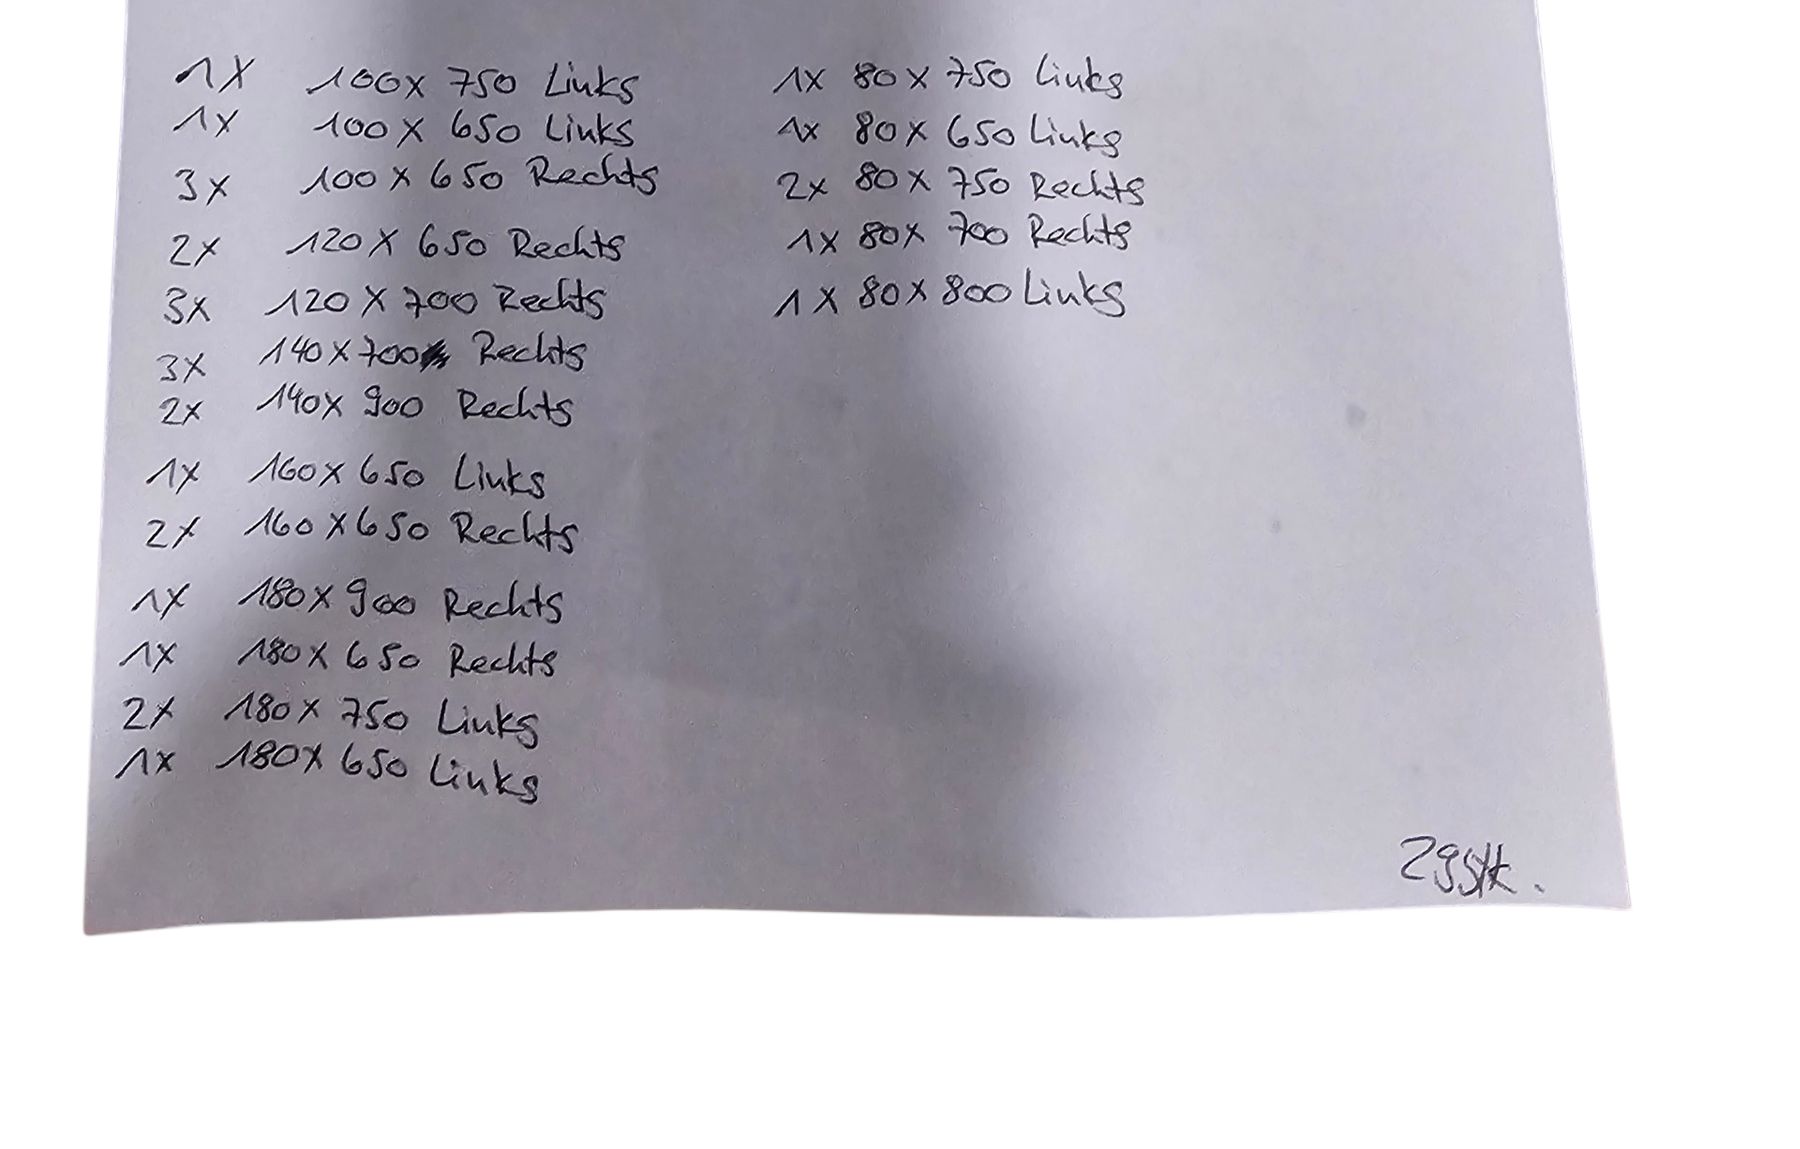 1x 100x 750 Links
1x 100 x 650 Links
3x 100 x 650 Rechts
2x 120 x 650 Rechts
3x 120 x 700 Rechts
3x 140 x 700 Rechts
2x 140x 900 Rechts
1x 160x 650 Links
2x 160 x 650 Rechts
1x 180x 900 Rechts
1x 180x 650 Rechts
2x 180x 750 Links
1x 180x 650 Links
1x 80 x 750 Links
1x 80x 650 Links
2x 80 x 750 Rechts
1x 80x 700 Rechts
1x 80x 800 Links
29 Stk.